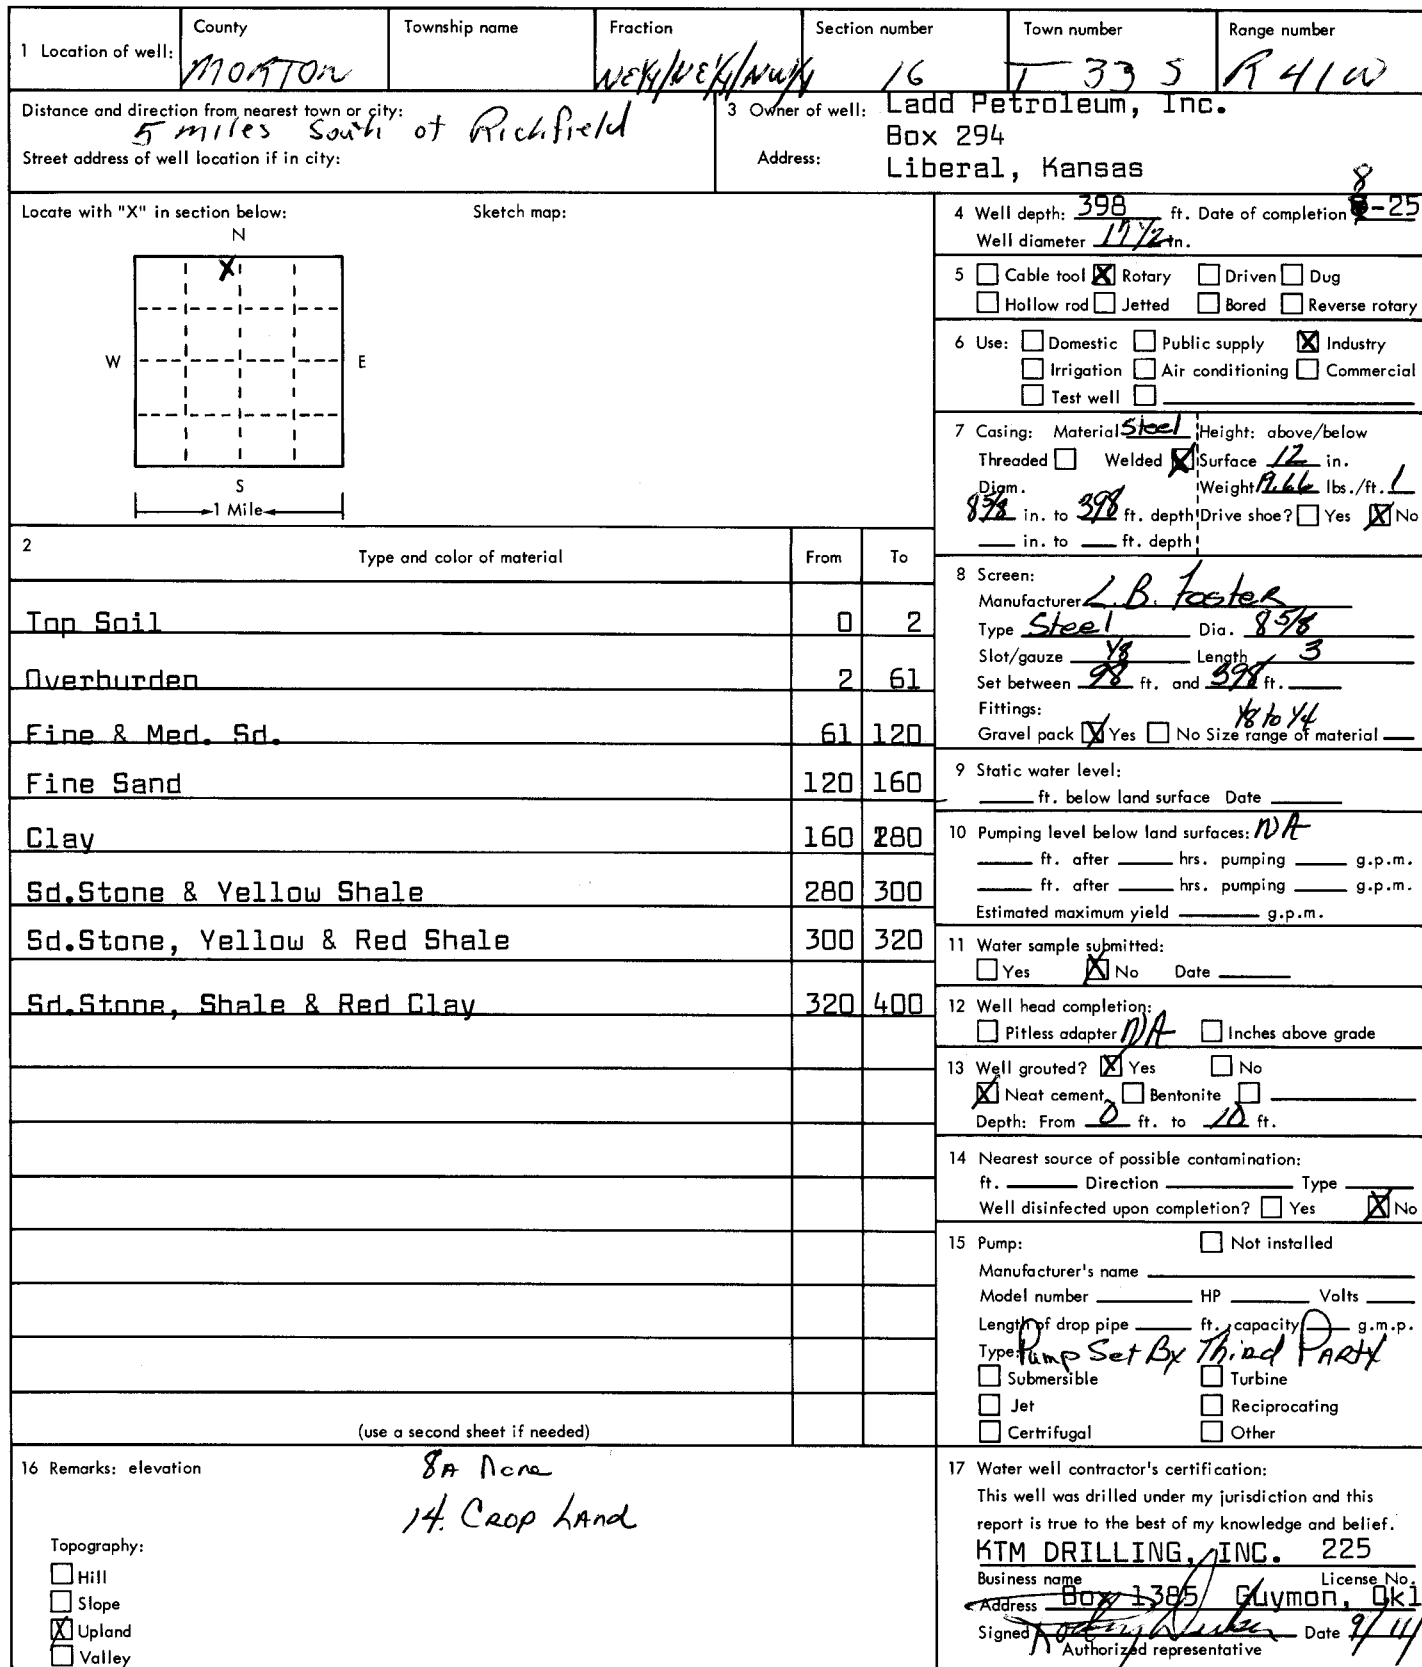 1 Location of well: County Township name Fraction Section number Town number Range number
MORTON NE¼/NE¼/NW¼ 16 T 33 S R 41 W
Distance and direction from nearest town or city:
5 miles South of Richfield
Street address of well location if in city:
3 Owner of well: Ladd Petroleum, Inc.
Box 294
Address: Liberal, Kansas
Locate with "X" in section below: Sketch map:
N
X
W E
S
1 Mile
2 Type and color of material From To
Top Soil 0 2
Overburden 2 61
Fine & Med. Sd. 61 120
Fine Sand 120 160
Clay 160 280
Sd.Stone & Yellow Shale 280 300
Sd.Stone, Yellow & Red Shale 300 320
Sd.Stone, Shale & Red Clay 320 400
(use a second sheet if needed)
4 Well depth: 398 ft. Date of completion 8-25
Well diameter 17½ in.
5 Cable tool X Rotary Driven Dug
Hollow rod Jetted Bored Reverse rotary
6 Use: Domestic Public supply X Industry
Irrigation Air conditioning Commercial
Test well
7 Casing: Material Steel Height: above/below
Threaded Welded X Surface 12 in.
Diam. Weight 19.66 lbs./ft. 1
8 5/8 in. to 398 ft. depth Drive shoe? Yes X No
in. to ft. depth
8 Screen:
Manufacturer L.B. Foster
Type Steel Dia. 8 5/8
Slot/gauze 1/8 Length 3
Set between 98 ft. and 398 ft.
Fittings: 1/8 to 1/4
Gravel pack X Yes No Size range of material
9 Static water level:
ft. below land surface Date
10 Pumping level below land surfaces: NA
ft. after hrs. pumping g.p.m.
ft. after hrs. pumping g.p.m.
Estimated maximum yield g.p.m.
11 Water sample submitted:
Yes X No Date
12 Well head completion:
Pitless adapter N/A Inches above grade
13 Well grouted? X Yes No
X Neat cement Bentonite
Depth: From 0 ft. to 10 ft.
14 Nearest source of possible contamination:
ft. Direction Type
Well disinfected upon completion? Yes X No
15 Pump: Not installed
Manufacturer's name
Model number HP Volts
Length of drop pipe ft. capacity g.m.p.
Type: Pump Set By Third Party
Submersible Turbine
Jet Reciprocating
Certrifugal Other
16 Remarks: elevation 8A None
14. Crop Land
Topography:
Hill
Slope
X Upland
Valley
17 Water well contractor's certification:
This well was drilled under my jurisdiction and this
report is true to the best of my knowledge and belief.
KTM DRILLING, INC. 225
Business name License No.
Address Box 1385 Guymon, Okl
Signed Date 9/11/
Authorized representative